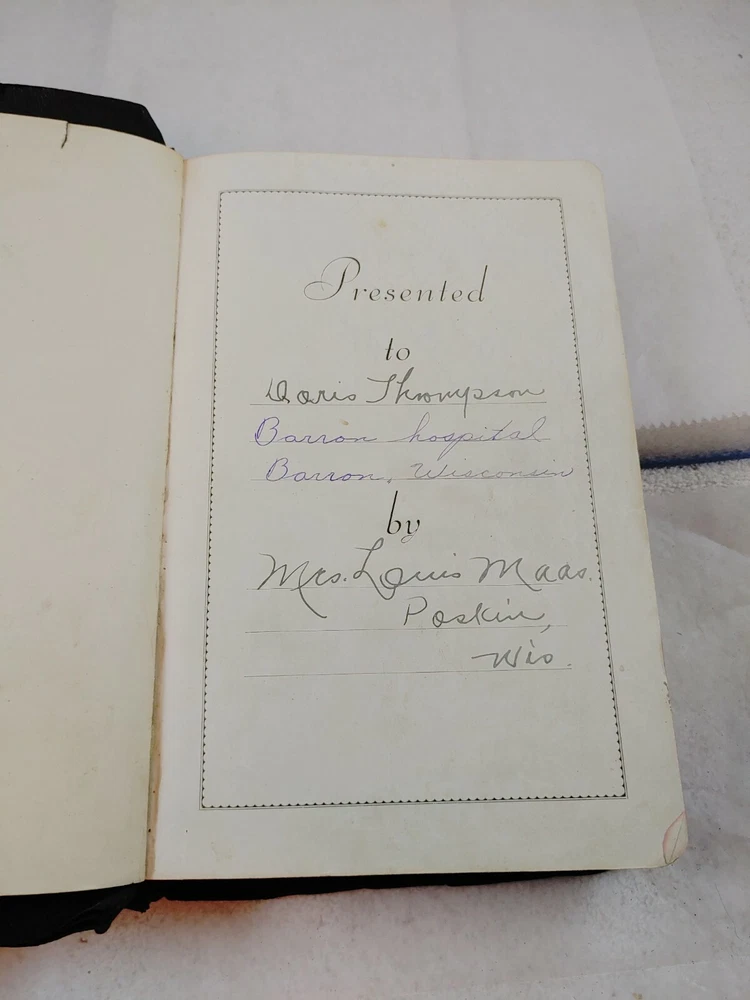 Presented
to
Doris Thompson
Barron hospital
Barron, Wisconsin
by
Mrs. Louis Maas.
Poskin,
Wis.